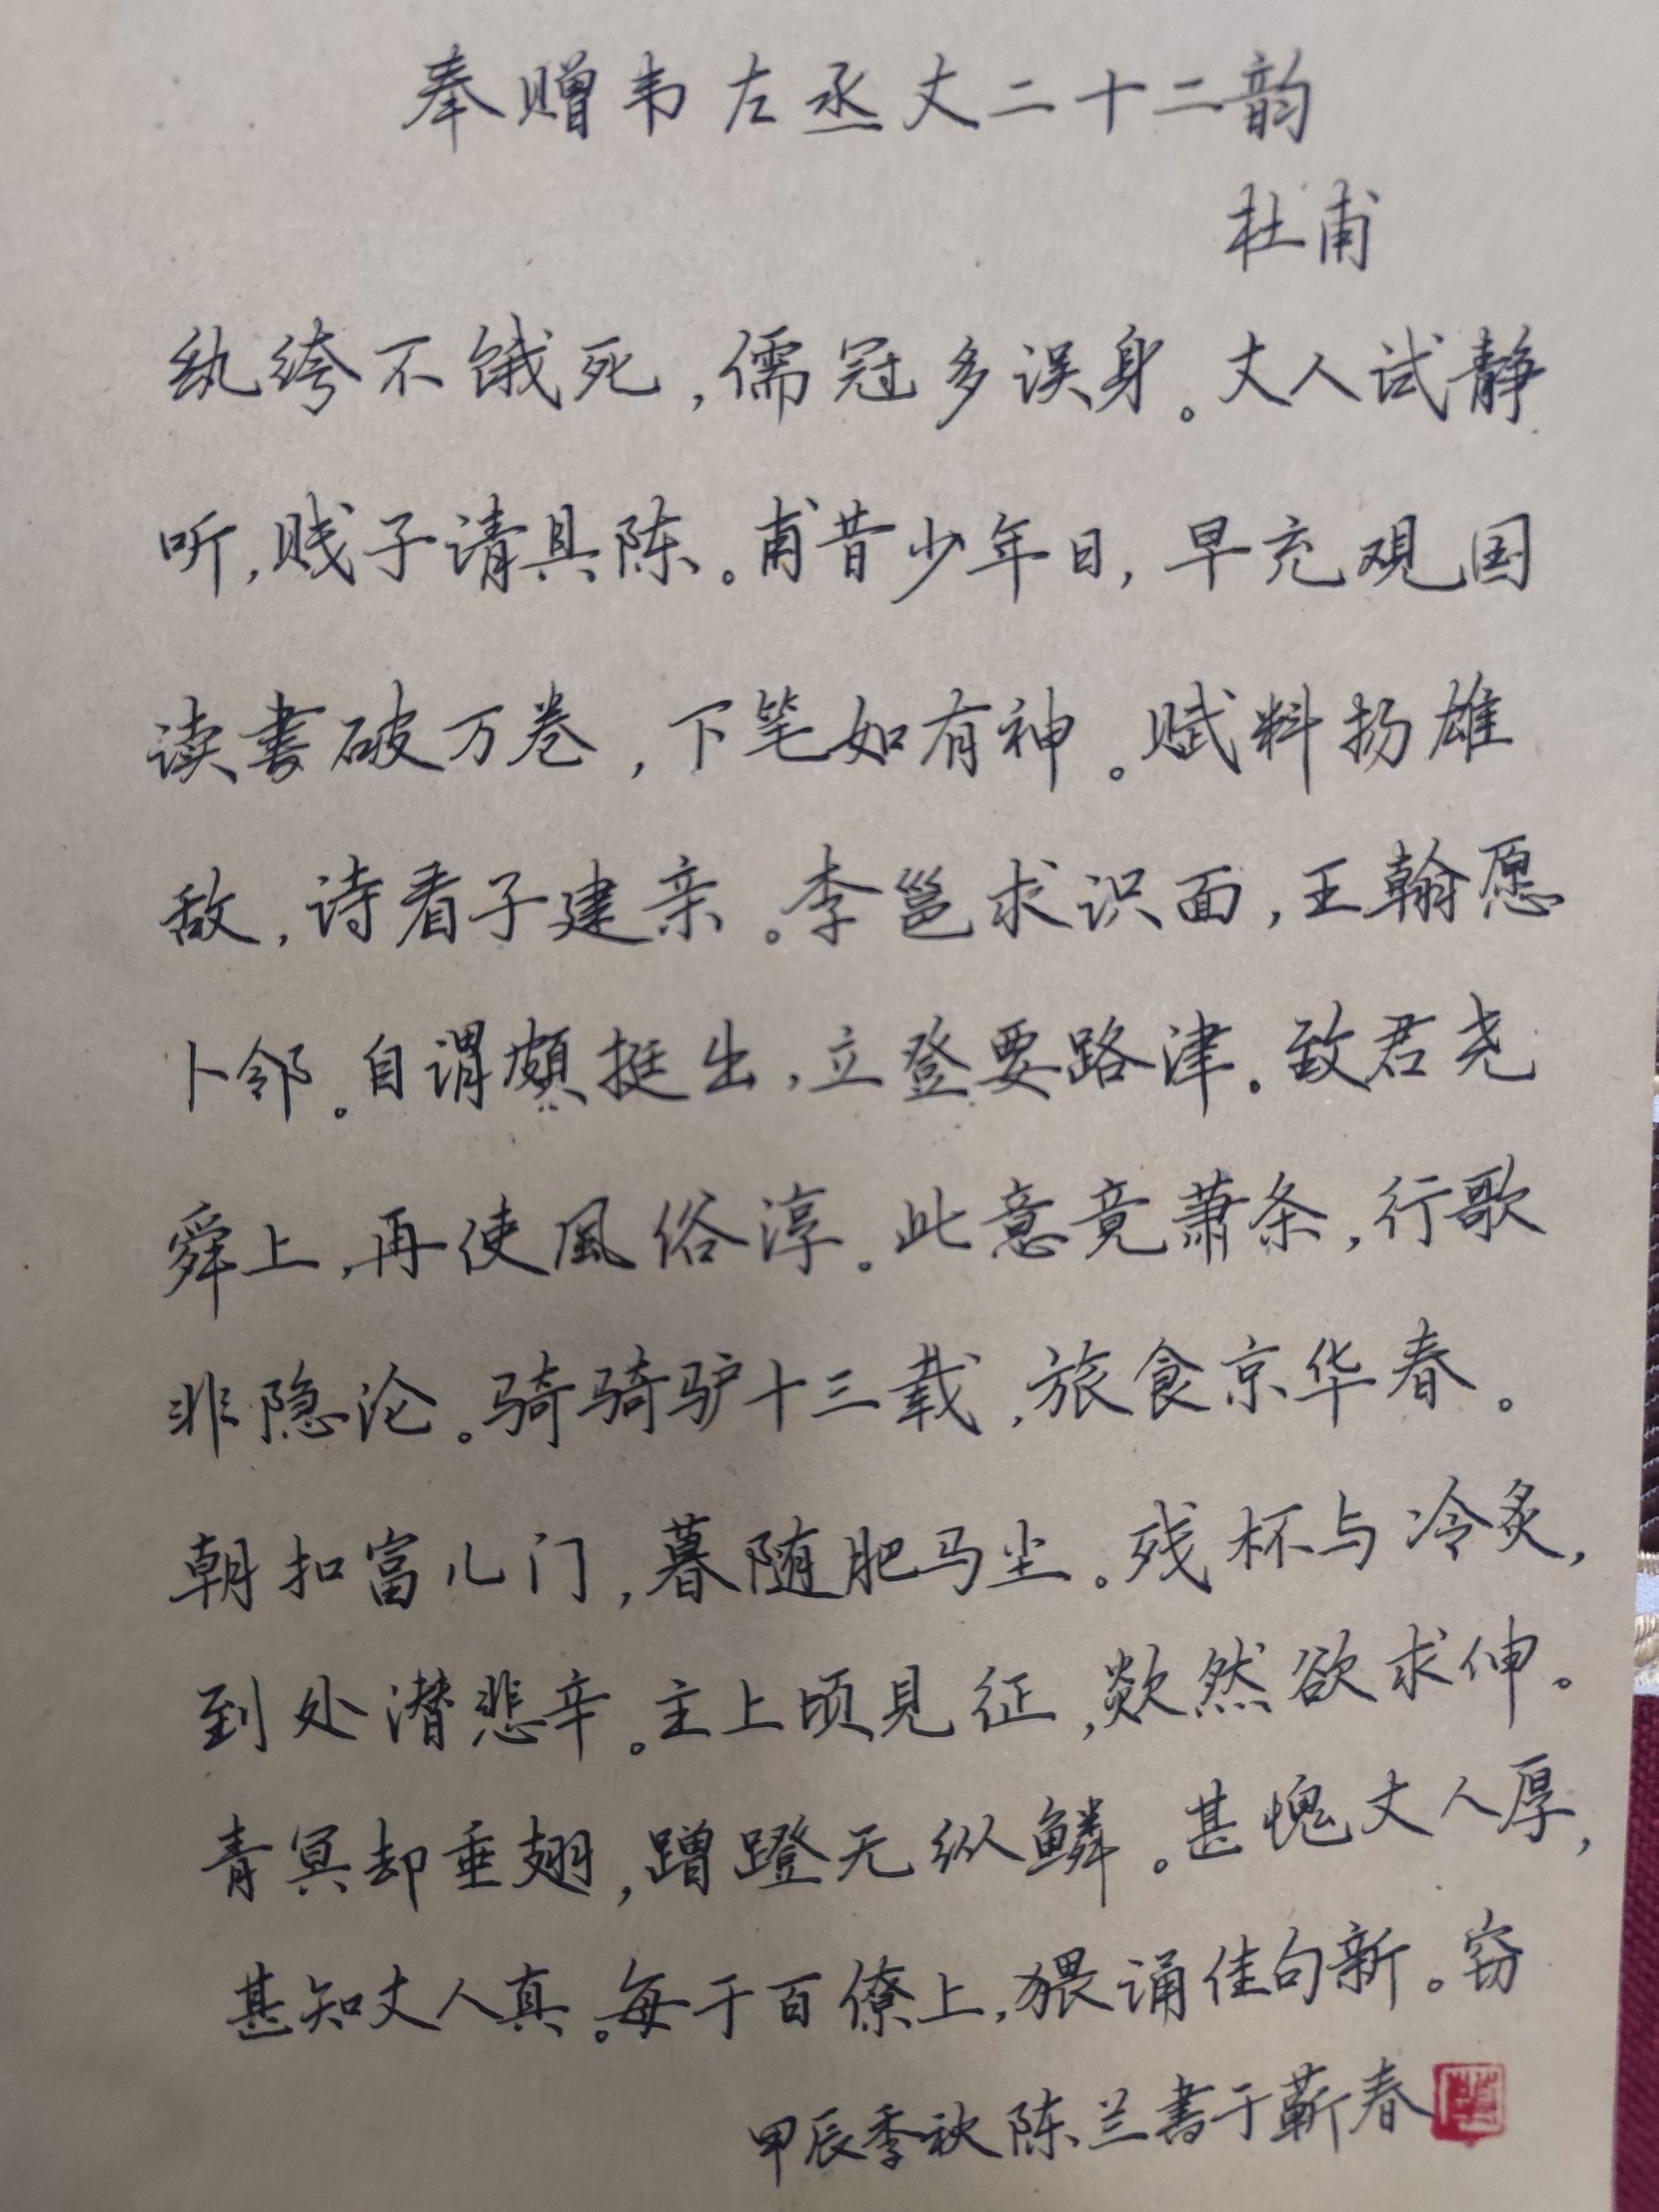 奉赠韦左丞丈二十二韵
杜甫
纨绔不饿死,儒冠多误身。丈人试静
听,贱子请具陈。甫昔少年日,早充观国
读书破万卷,下笔如有神。赋料扬雄
敌,诗看子建亲。李邕求识面,王翰愿
卜邻。自谓颇挺出,立登要路津。致君尧
舜上,再使風俗淳。此意竟萧条,行歌
非隐沦。骑骑驴十三载,旅食京华春。
朝扣富儿门,暮随肥马尘。残杯与冷炙,
到处潜悲辛。主上顷见征,欻然欲求伸。
青冥却垂翅,蹭蹬无纵鳞。甚愧丈人厚,
甚知丈人真。每于百僚上,猥诵佳句新。窃
甲辰季秋陈兰書于蕲春